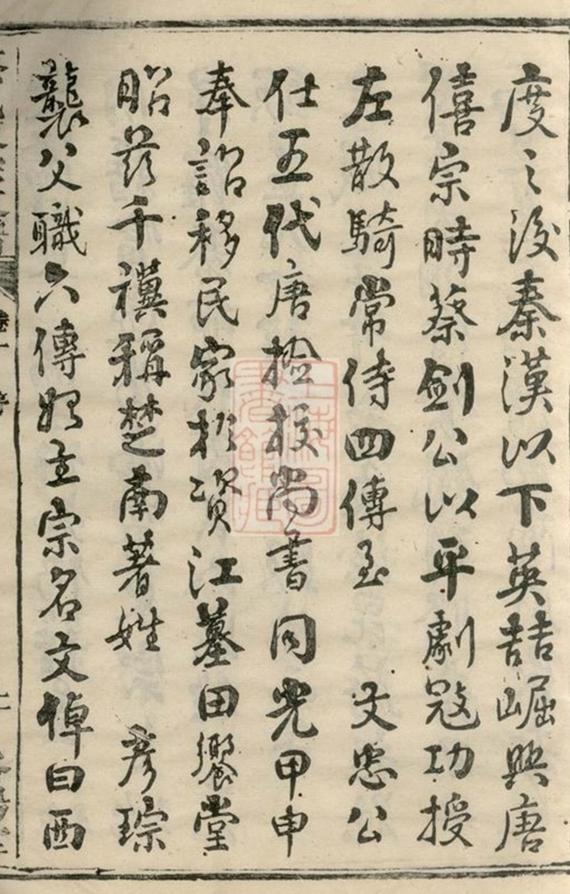 度之後秦漢以下英喆崛興唐
僖宗時蔡劍公以平劇冦功授
左散騎常侍四傳至 文忠公
仕五代唐檢校尚書同光甲申
奉詔移民家於資江墓田饗堂
昭茲千禩稱楚南著姓 彥琮
襲父職六傳始立宗名文倬曰西